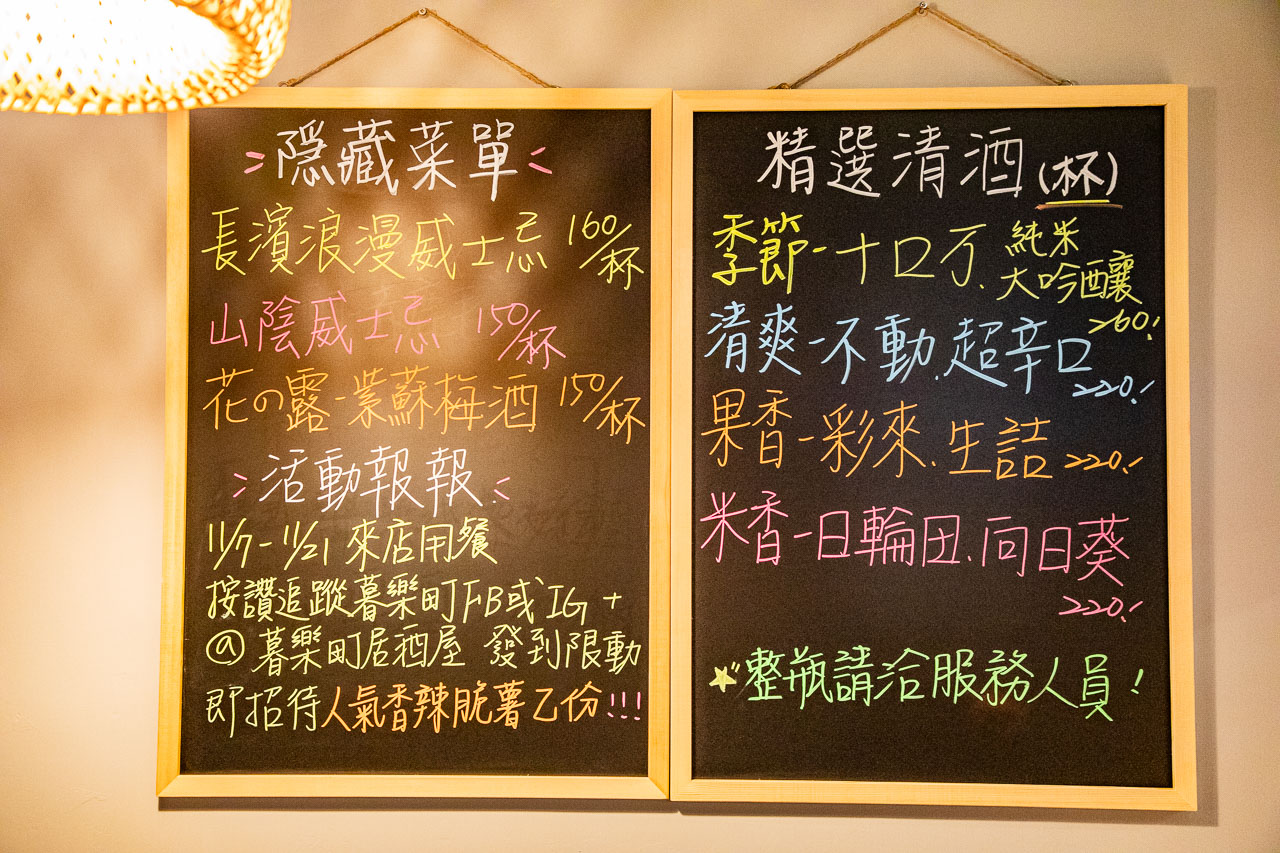 隱藏菜單
長濱浪漫威士忌 160/杯
山陰威士忌 150/杯
花の露-紫蘇梅酒 150/杯
活動報報
11/7-11/21 來店用餐
按讚追蹤暮樂町FB或IG+
@暮樂町居酒屋 發到限動
即招待人氣香辣脆薯乙份!!!
精選清酒(杯)
季節-十口万.純米
大吟釀
260!
清爽-不動.超辛口
220!
果香-彩來.生詰 220!
米香-日輪田.向日葵
220!
整瓶請洽服務人員!